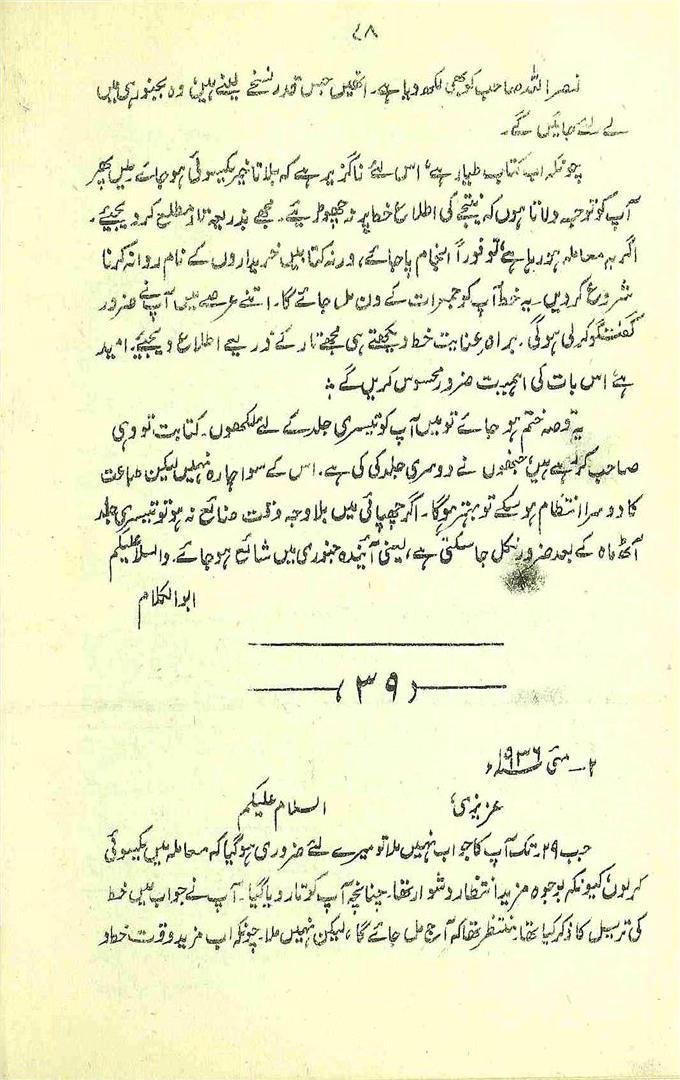 ۴۸
نصر اللہ صاحب کو بھی لکھ دیا ہے۔ انھیں جس قدر نسخے لینے ہیں وہ بجنور ہی میں
لے لئے جائیں گے۔
چونکہ اب کتاب طیار ہے، اس لئے ناگزیر ہے کہ بلا تاخیر یکسوئی ہو جائے۔ میں پھر
آپ کو توجہ دلاتا ہوں کہ نتیجے کی اطلاع خط پر نہ چھوڑیئے۔ مجھے بذریعہ تار مطلع کر دیجیے۔
اگر یہ معاملہ ہو رہا ہے تو فوراً انجام پا جائے، ورنہ کتابیں خریداروں کے نام روانہ کرنا
شروع کر دیں۔ یہ خط آپ کو جمعرات کے دن مل جائے گا۔ اتنے عرصے میں آپ نے ضرور
گفتگو کر لی ہوگی۔ براہ عنایت خط دیکھتے ہی مجھے تار کے ذریعے اطلاع دیجیے۔ امید
ہے اس بات کی اہمیت ضرور محسوس کریں گے۔
یہ قصہ ختم ہو جائے تو میں آپ کو تیسری جلد کے لئے لکھوں۔ کتابت تو وہی
صاحب کر رہے ہیں، جنھوں نے دوسری جلد کی کی ہے۔ اس کے سوا چارہ نہیں لیکن طباعت
کا دوسرا انتظام ہو سکے تو بہتر ہوگا۔ اگر چھپائی میں بلا وجہ وقت ضائع نہ ہو تو تیسری جلد
آٹھ ماہ کے بعد ضرور نکل جا سکتی ہے، یعنی آیندہ جنوری میں شائع ہو جائے۔ والسلام علیکم
ابوالکلام
(۳۹)
۲۔ مئی ۱۹۳۶ء
عزیزی، السلام علیکم
جب ۲۹۔ تک آپ کا جواب نہیں ملا تو میرے لئے ضروری ہو گیا کہ معاملہ میں یکسوئی
کر لوں کیونکہ بوجوہ مزید انتظار دشوار تھا۔ چنانچہ آپ کو تار دیا گیا۔ آپ نے جواب میں خط
کی ترسیل کا ذکر کیا تھا۔ منتظر تھا کہ آج مل جائے گا، لیکن نہیں ملا۔ چونکہ اب مزید وقت خط و